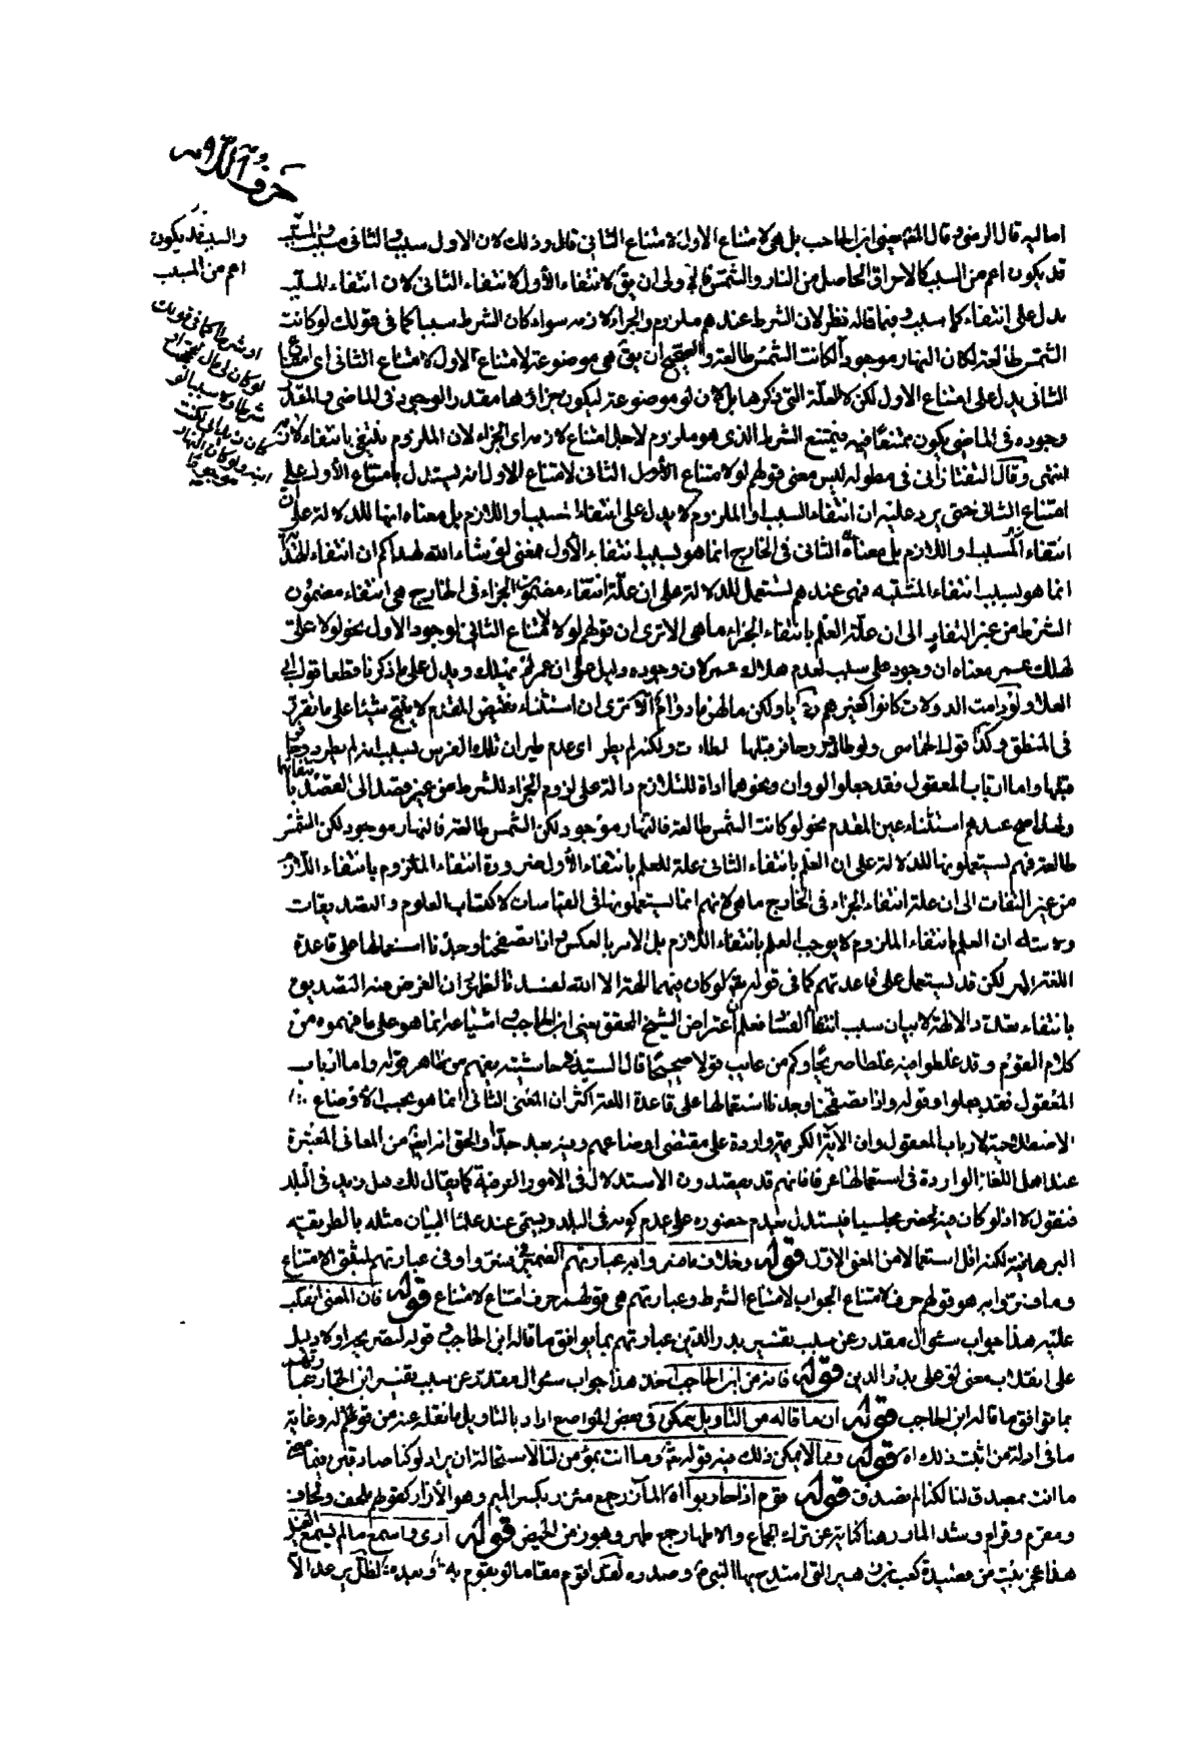 حرف الواو
اما اليه قال الرضى وقال المصنف يعنى ابن الحاجب بل هى لامتناع الاول لامتناع الثانى قال وذلك لان الاول سبب والثانى مسبب والمسبب
قد يكون اعم من السبب كالاشراق الحاصل من النار والشمس فالاولى ان يق لانتفاء الأول لانتفاء الثانى لان انتفاء المسبب
يدل على انتفاء كل سبب وفيما قاله نظر لان الشرط عندهم ملزوم والجزاء لازمه سواء كان الشرط سببا كما فى قولك لو كانت
الشمس طالعة لكان النهار موجودا لكانت الشمس طالعة والصحيح ان يق هى موضوعة لامتناع الاول لامتناع الثانى اى امتناع
الثانى يدل على امتناع الاول لكن لا للعلة التى ذكرها بل لان لو موضوعة ليكون جزاؤها مقدر الوجود فى الماضى والمقدر
وجوده فى الماضى يكون ممتنعا فيه فيمتنع الشرط الذى هو ملزوم لاجل امتناع لازمه اى الجزاء لان الملزوم ينتفى بانتفاء لازمه
انتهى وقال التفتازانى فى مطوله ليس معنى قولهم لو لامتناع الثانى لامتناع الاول انه يستدل بامتناع الأول على
امتناع الثانى حتى يرد عليه ان انتفاء السبب او الملزوم لا يدل على انتفاء المسبب او اللازم بل معناه انها للدلالة على ان
انتفاء المسبب او اللازم بل معناه الثانى فى الخارج انما هو بسبب انتفاء الأول فمعنى لو شاء الله لهداكم ان انتفاء الهداية
انما هو بسبب انتفاء المشية فهى عندهم تستعمل للدلالة على ان علة انتفاء مضمون الجزاء فى الخارج هى انتفاء مضمون
الشرط من غير التفات الى ان علة العلم بانتفاء الجزاء ما هى الا ترى ان قولهم لولا لامتناع الثانى لوجود الاول نحو لولا على
لهلك عمر معناه ان وجود على سبب لعدم هلاك عمر لا ان وجوده دليل على ان عمر لم يهلك ويدل على ما ذكرنا قطعا قول ابى
العلا ولو دامت الدولات كانوا كغيرهم رعايا ولكن ما لهن دوام ألا ترى ان استثناء نقيض المقدم لا ينتج شيئا على ما تقرر
فى المنطق وكذا قول الحماسى ولو طار ذو حافر قبلها لطارت ولكنه لم يطر اى عدم طيران تلك الفرس بسبب انه لم يطر ذو حافر
قبلها واما ارباب المعقول فقد جعلوا لو وان ونحوهما اداة للتلازم دالة على لزوم الجزاء للشرط من غير قصد الى القصد بانتفائها
ولهذا صح عندهم استثناء عين المقدم نحو لو كانت الشمس طالعة فالنهار موجود لكن الشمس طالعة فالنهار موجود لكن الشمس
طالعة فهم يستعملونها للدلالة على ان العلم بانتفاء الثانى علة للعلم بانتفاء الأول ضرورة انتفاء الملزوم بانتفاء اللازم
من غير التفات الى ان علة انتفاء الجزاء فى الخارج ما هى لانهم انما يستعملونها فى القياسات لاكتساب العلوم والتصديقات
ولا شك ان العلم بانتفاء الملزوم لا يوجب العلم بانتفاء اللازم بل الامر بالعكس واذا تصفحنا وجدنا استعمالها على قاعدة
اللغة اكثر لكن قد يستعمل على قاعدتهم كما فى قوله تع لو كان فيهما الهة الا الله لفسدتا لظهور ان الغرض منه التصديق
بانتفاء تعدد الالهة لا بيان سبب انتفاء الفساد فعلم ان اعتراض الشيخ المحقق يعنى ابن الحاجب واشياعه انما هو على ما فهموه من
كلام القوم وقد غلطوا فيه غلطا صريحا وكم من عايب قولا صحيحا قال السيد فى حاشيته يفهم من ظاهر قوله واما ارباب
المعقول فقد جعلوا وقوله واذا تصفحنا وجدنا استعمالها على قاعدة اللغة اكثر ان المعنى الثانى انما هو بحسب الأوضاع
الاصطلاحية لارباب المعقول وان الآية الكريمة واردة على مقتضى اوضاعهم وفيه بعد جدا والحق انه ايضا من المعانى المعتبرة
عند اهل اللغة الواردة فى استعمالها عرفا فانهم قد يقصدون الاستدلال فى الامور العرفية كما يقال لك هل زيد فى البلد
فنقول لا اذ لو كان فيه لحضر مجلسنا فيستدل بعدم حضوره على عدم كونه فى البلد ويسمى عند علماء البيان مثله بالطريقة
البرهانية لكنه اقل استعمالا من المعنى الاول قوله وخلاف ما فسروا به عبارتهم الضمير فى فسروا وفى عبارتهم
وما فسروا به هو قولهم حرف لامتناع الجواب لامتناع الشرط وعبارتهم هى قولهم حرف امتناع لامتناع قوله فان المعنى انقلب
عليه هذا جواب سئوال مقدر عن سبب تفسير بدر الدين عبارتهم بما يوافق ما قاله ابن الحاجب
على انقلاب معنى لو على بدر الدين قوله فانه من ابن الحاجب اخذ هذا جواب سئوال مقدر عن سبب تفسير ابن الخباز عبارتهم
بما توافق ما قاله ابن الحاجب قوله ان ما قاله من التاويل يمكن فى بعض المواضع اراد بالتاويل ما نقله عنه من قولهم
قوله ومما لا يمكن ذلك فيه قوله تع وما انت بمؤمن لنا
ما انت بمصدق لنا لكنا لم نصدق قوله قوم اذا حاربوا اه المآزر جمع مئزر بكسر الميم وهو الأزار كقولهم ملحف ولحاف
ومقرم وقرام وشد المآزر هنا كناية عن ترك الجماع والاطهار جمع طهر وهو زمن الحيض قوله ارى واسمع ما لم يسمع الفيل
هذا عجز بيت من قصيدة كعب بن زهير التى امتدح بها النبى وصدره لقد اقوم مقاما لو يقوم به وبعده لظل يرعد الا
والسبب قد يكون
اعم من المسبب